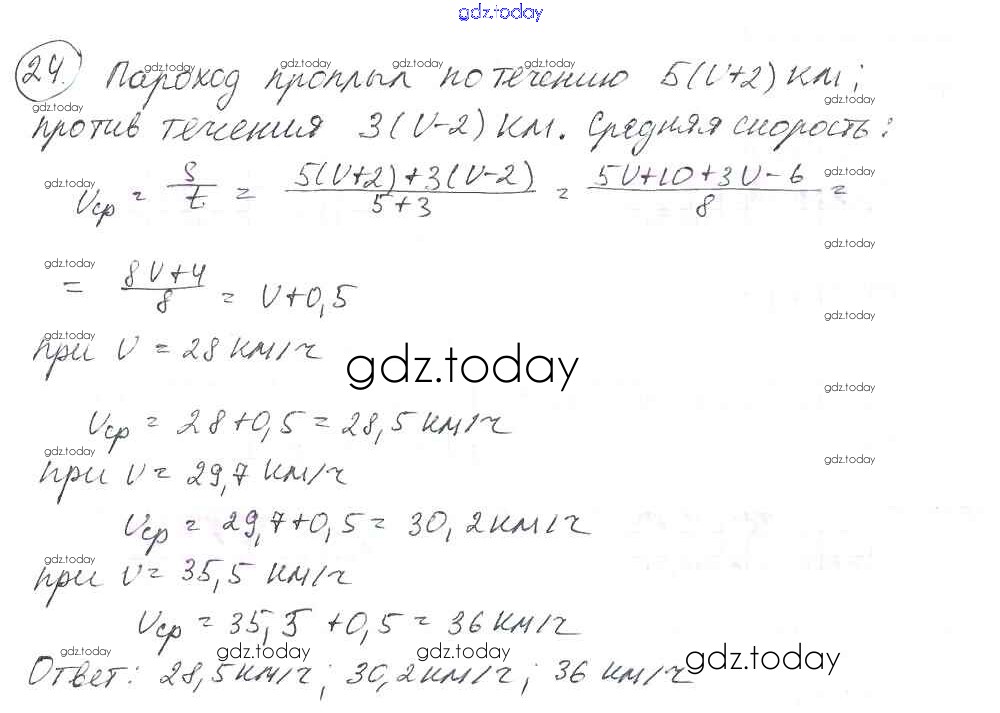 gdz.today
24. Пароход проплыл по течению 5(V+2) км;
против течения 3(V-2) км. Средняя скорость:
Vср = S/t = (5(V+2)+3(V-2))/(5+3) = (5V+10+3V-6)/8 =
= (8V+4)/8 = V+0,5
при V = 28 км/ч
gdz.today
Vср = 28+0,5 = 28,5 км/ч
при V = 29,7 км/ч
Vср = 29,7+0,5 = 30,2 км/ч
при V = 35,5 км/ч
Vср = 35,5 + 0,5 = 36 км/ч
Ответ: 28,5 км/ч; 30,2 км/ч; 36 км/ч
gdz.today